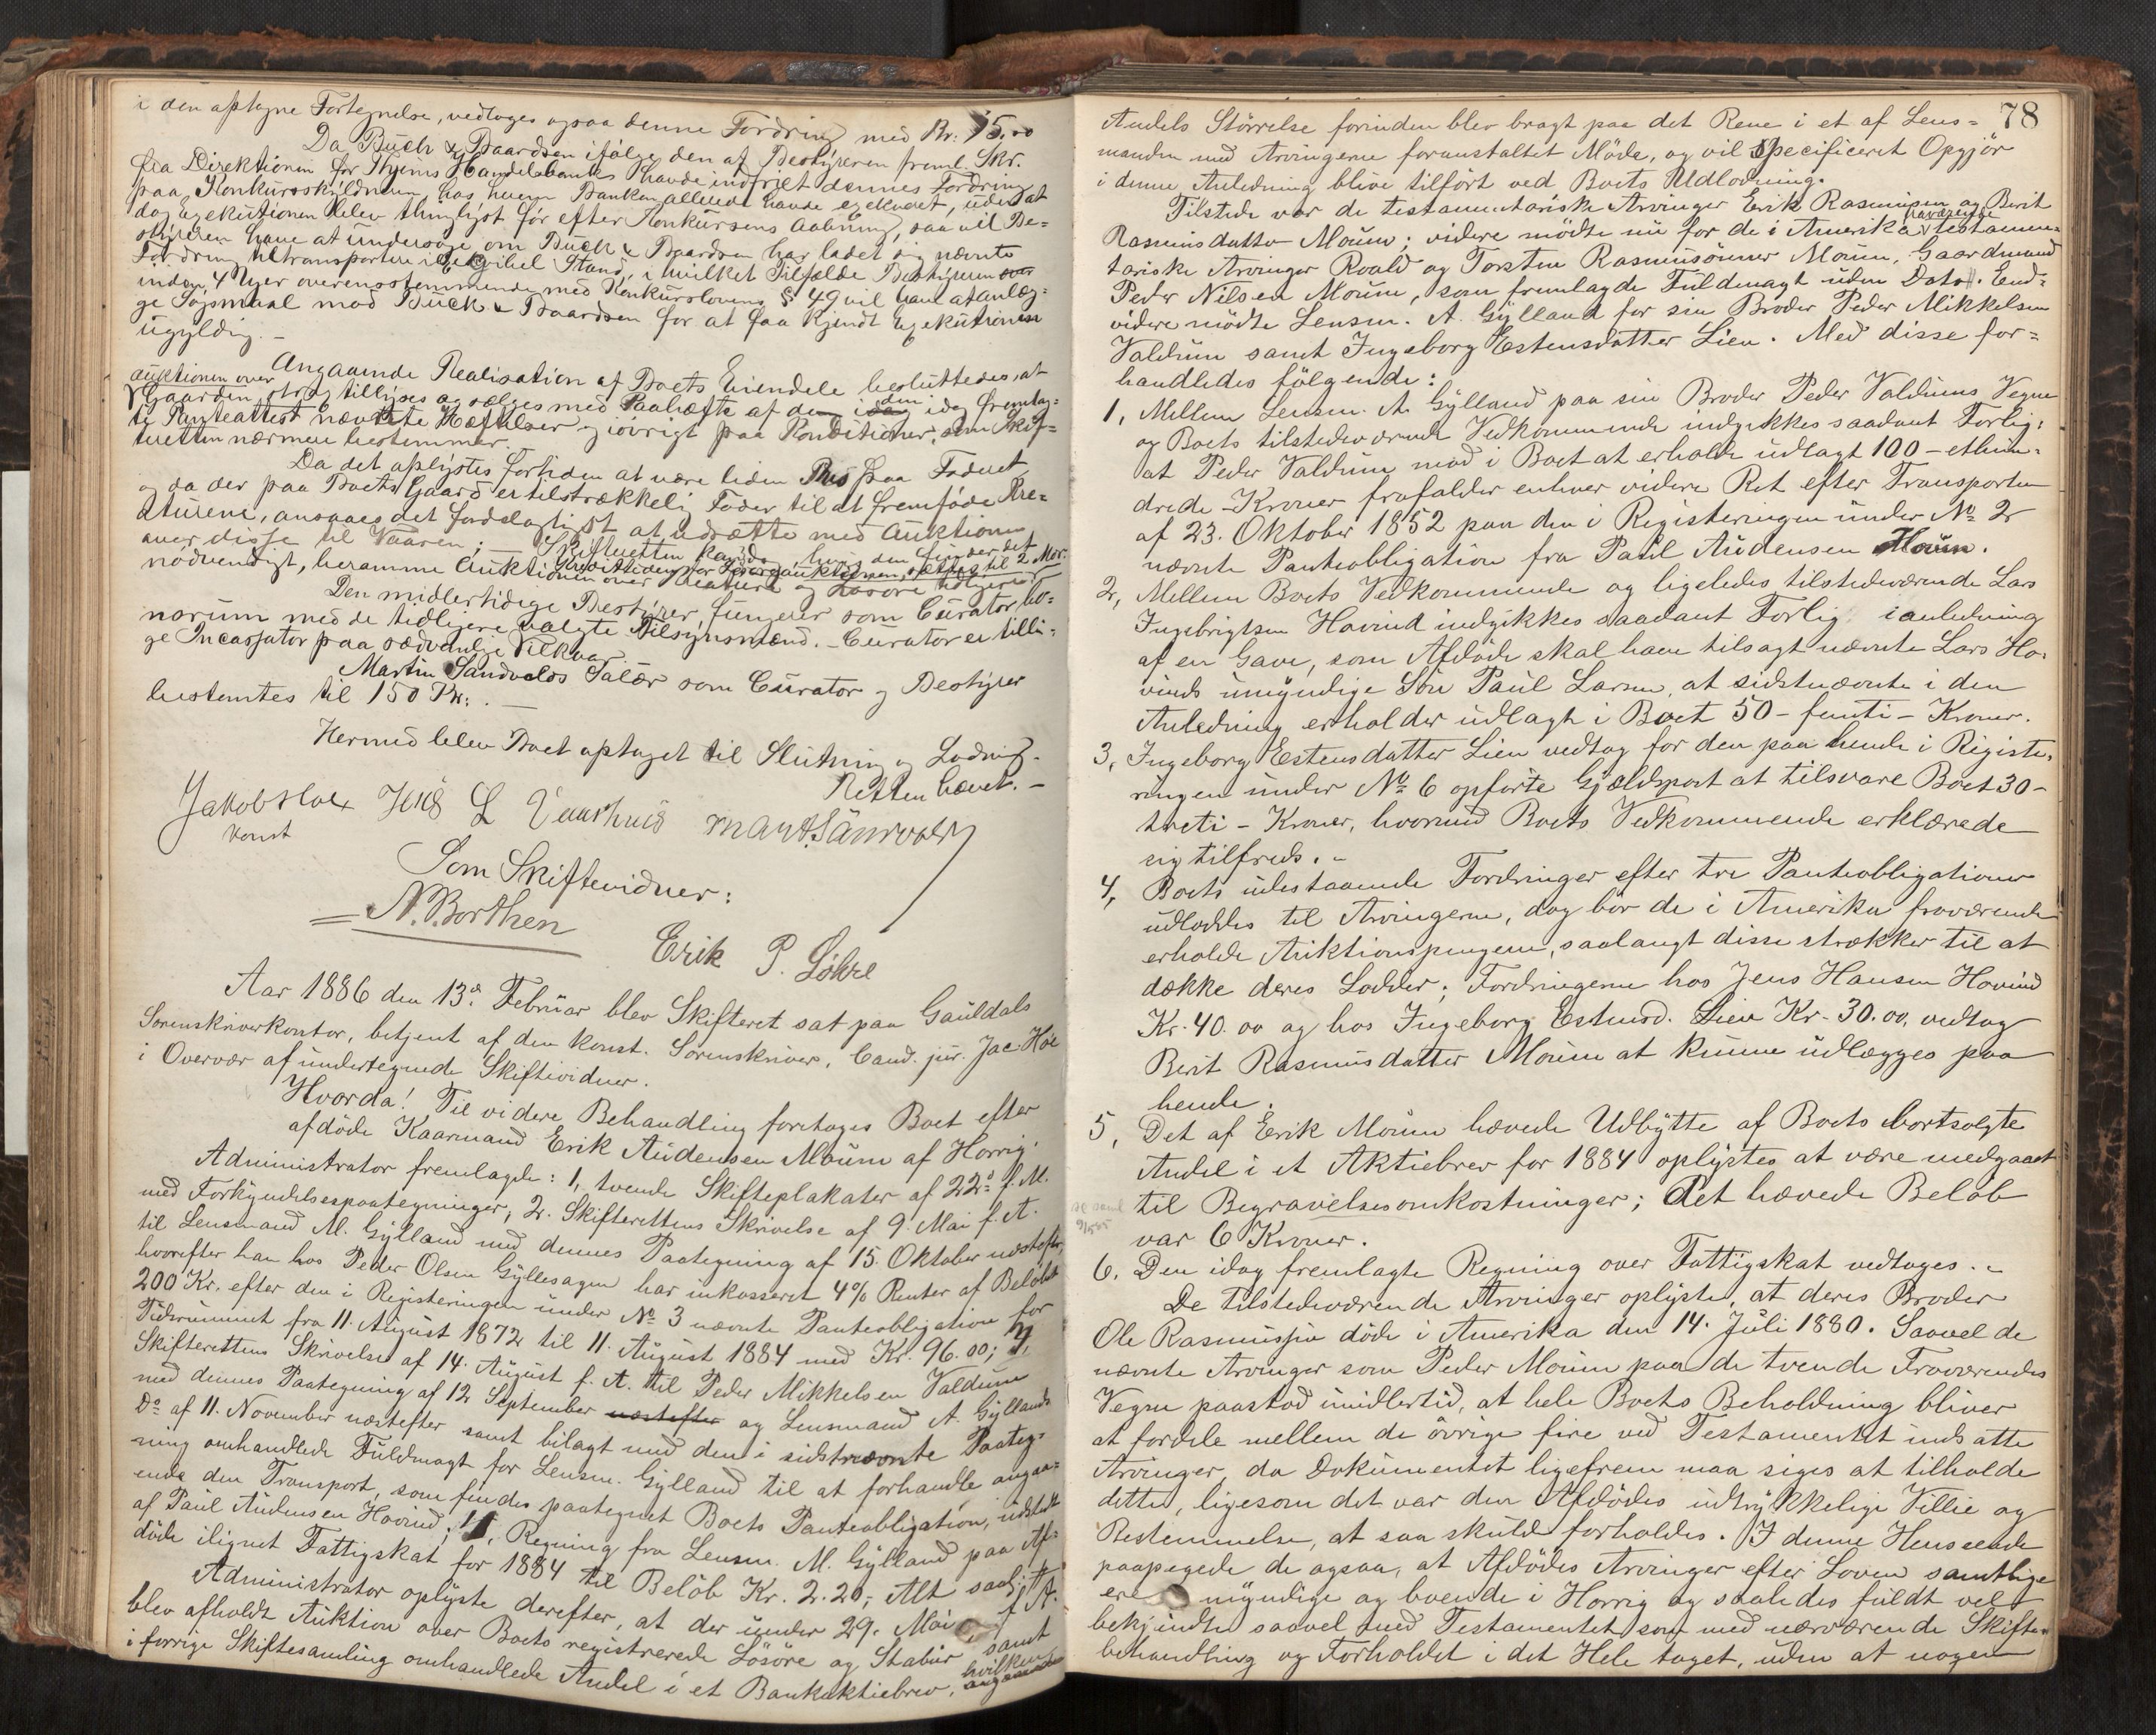 i den optagne Fortegnelse, vedtoges ogsaa denne Fordring med Kr: 75.00
Da Buck & Baardsen ifølge den af Bestyreren freml. Skr.
fra Direktionen for Thjems Handelsbank havde indfriet dennes Fordring
paa Konkursskyldneren, hos hvem Banken allerede havde exekveret, uden at
dog exekutionen blev thinglyst før efter Konkursens Aabning, saa vil Be-
styreren have at undersøge, om Buck & Baardsen har ladet sig nævnte
Fordring transportere i exigibel Stand, i hvilket Tilfælde Bestyreren
inden 4 Uger overensstemmende med Konkurslovens § 49 vil have at anlæg-
ge Søgsmaal mod Buck & Baardsen for at faa kjendt Exekutionen
ugyldig. -
Angaaende Realisation af Boets Eiendele besluttedes, at
auktionen over
Gaarden strax tillyses og sælges med Paahæfte af de i den idag fremlag-
te Panteattest nævnte Hæftelser og iøvrigt paa Konditioner, som Skif-
teretten nærmere bestemmer.
Da det oplystes fortiden at være liden Pris paa Faduet
og da der paa Boets Gaard er tilstrækkelig Foder til at fremføde Kre-
aturene, ansaaes det fordelagtigst at udsætte med Auktionen
over disse til Vaaren; - Skifteretten kan dog, hvis den finder det
nødvendigt, beramme Auktionen over Kreature og Løsøre tidligere
Kredittiden for Løsøreauktionen sættes til 2 Mdr.
Den midlertidige Bestyrer fungerer som Curator bo-
norum med de tidligere valgte Tilsynsmænd. - Curator er tilli-
ge Incassator paa sædvanlige Vilkaar.
Martin Sandvolds Salær som Curator og Bestyrer
bestemtes til 150 Kr: . -
Hermed blev Boet optaget til Slutning og Lodning.
Retten hævet. -
Jakob Høe Jens L Vaarhuis Mart. Sannvold
konst
Som Skiftevidner:
N. Borthen
Erik P. Løhre
Aar 1886 den 13de Februar blev Skifteret sat paa Gauldals
Sorenskriverkontor, betjent af den konst. Sorenskriver, Cand. jur. Jac. Høe
i Overvær af undertegnede Skiftevidner.
Hvorda! Til videre Behandling foretoges Boet efter
afdøde Kaarmand Erik Audensen Moum af Horrig.
Administrator fremlagde: 1, tvende Skifteplakater af 22de f. M.
med Forkyndelsespaategninger; 2. Skifterettens Skrivelse af 9. Mai f. A.
til Lensmand M. Gylland med dennes Paategning af 15. Oktober næstefter,
hvorefter han hos Peder Olsen Gyllesagen har inkasseret 4% Renter af Beløbet
200 Kr. efter den i Registeringen under No 3 nævnte Panteobligation for
Tidsrummet fra 11. August 1872 til 11. August 1884 med Kr. 96.00; 3,
Skifterettens Skrivelse af 14. August f. A. til Peder Mikkelsen Valdum
med dennes Paategning af 12 September næstefter og Lensmand A. Gyllands
Do af 11. November næstefter samt bilagt med den i sidstnævnte Paateg-
ning omhandlede Fuldmagt for Lensm. Gylland til at forhandle angaa-
ende den Transport, som findes paategnet Boets Panteobligation, udstedt
af Paul Audensen Hovind; 4, Regning fra Lensm. M. Gylland paa Af-
døde ilignet Fattigskat for 1884 til Beløb Kr. 2.20; Alt saal.
Administrator oplyste derefter, at der under 29. Mai f. A.
blev afholdt Auktion over Boets registrerede Løsøre og Stabur samt
i forrige Skiftesamling omhandlede Andel i et Bankaktiebrev, hvilken
angaaende
78
Andels Størrelse forinden blev bragt paa det Rene i et af Lens-
manden med Arvingerne foranstaltet Møde, og vil specificeret Opgjør
i denne Anledning blive tilført ved Boets Udlodning.
Tilstede var de testamentariske Arvinger Erik Rasmusen og Berit
Rasmusdatter Moum; videre mødte nu for de i Amerika fraværende testamen-
tariske Arvinger Roald og Torsten Rasmussønner Moum, Gaardmand
Peder Nilsen Moum, som fremlagde Fuldmagt uden Dato. End-
videre mødte Lensm. A. Gylland for sin Broder Peder Mikkelsen
Valdum samt Ingeborg Estensdatter Lien. Med disse for-
handledes følgende:
1, Mellem Lensm. A. Gylland paa sin Broder Peder Valdums Vegne
og Boets tilstedeværende Vedkommende indgikkes saadant Forlig:
at Peder Valdum mod i Boet at erholde udlagt 100 - ethun-
drede - Kroner frafalder enhver videre Ret efter Transporten
af 23. Oktober 1852 paa den i Registeringen under No 2
nævnte Panteobligation fra Paul Audensen Moum.
2, Mellem Boets Vedkommende og ligeledes tilstedeværende Lars
Ingebrigtsen Hovind indgikkes saadant Forlig i anledning
af en Gave, som Afdøde skal have tilsagt nævnte Lars Ho-
vinds umyndige Søn Paul Larsen, at sidstnævnte i den
Anledning erholder udlagt i Boet 50 - femti - Kroner.
3, Ingeborg Estensdatter Lien vedtog for den paa hende i Registe-
ringen under No 6 opførte Gjældspost at tilsvare Boet 30 -
treti - Kroner, hvormed Boets Vedkommende erklærede
sig tilfreds. -
4, Boets udestaaende Fordringer efter tre Panteobligationer
udloddes til Arvingerne, dog bør de i Amerika fraværende
erholde Auktionspengene, saalangt disse strækker til at
dække deres Lodder; Fordringerne hos Jens Hansen Hovind
Kr. 40.00 og hos Ingeborg Estensd. Lien Kr. 30.00, vedtog
Berit Rasmusdatter Moum at kunne udlægges paa
hende.
5, Det af Erik Moum hævede Udbytte af Boets bortsolgte
Andel i et Aktiebrev for 1884 oplystes at være medgaaet
til Begravelsesomkostninger; det hævede Beløb
var 6 Kroner.
6. Den idag fremlagte Regning over Fattigskat vedtoges. -
De tilstedeværende Arvinger oplyste, at deres Broder
Ole Rasmussen døde i Amerika den 14. Juli 1880. Saavel de
nævnte Arvinger som Peder Moum paa de tvende Fraværendes
Vegne paastod imidlertid, at hele Boets Beholdning bliver
at fordele mellem de øvrige fire ved Testamentet indsatte
Arvinger, da Dokumentet ligefrem maa siges at tilholde
dette, ligesom det var den Afdødes udtrykkelige Villie og
Bestemmelse, at saa skulde forholdes. I denne Henseende
paapegede de ogsaa, at Afdødes Arvinger efter Loven samtlige
ere myndige og boende i Horrig og saaledes fuldt vel
bekjendte saavel med Testamentet som med nærværende Skifte-
behandling og Forholdet i det Hele taget, uden at nogen